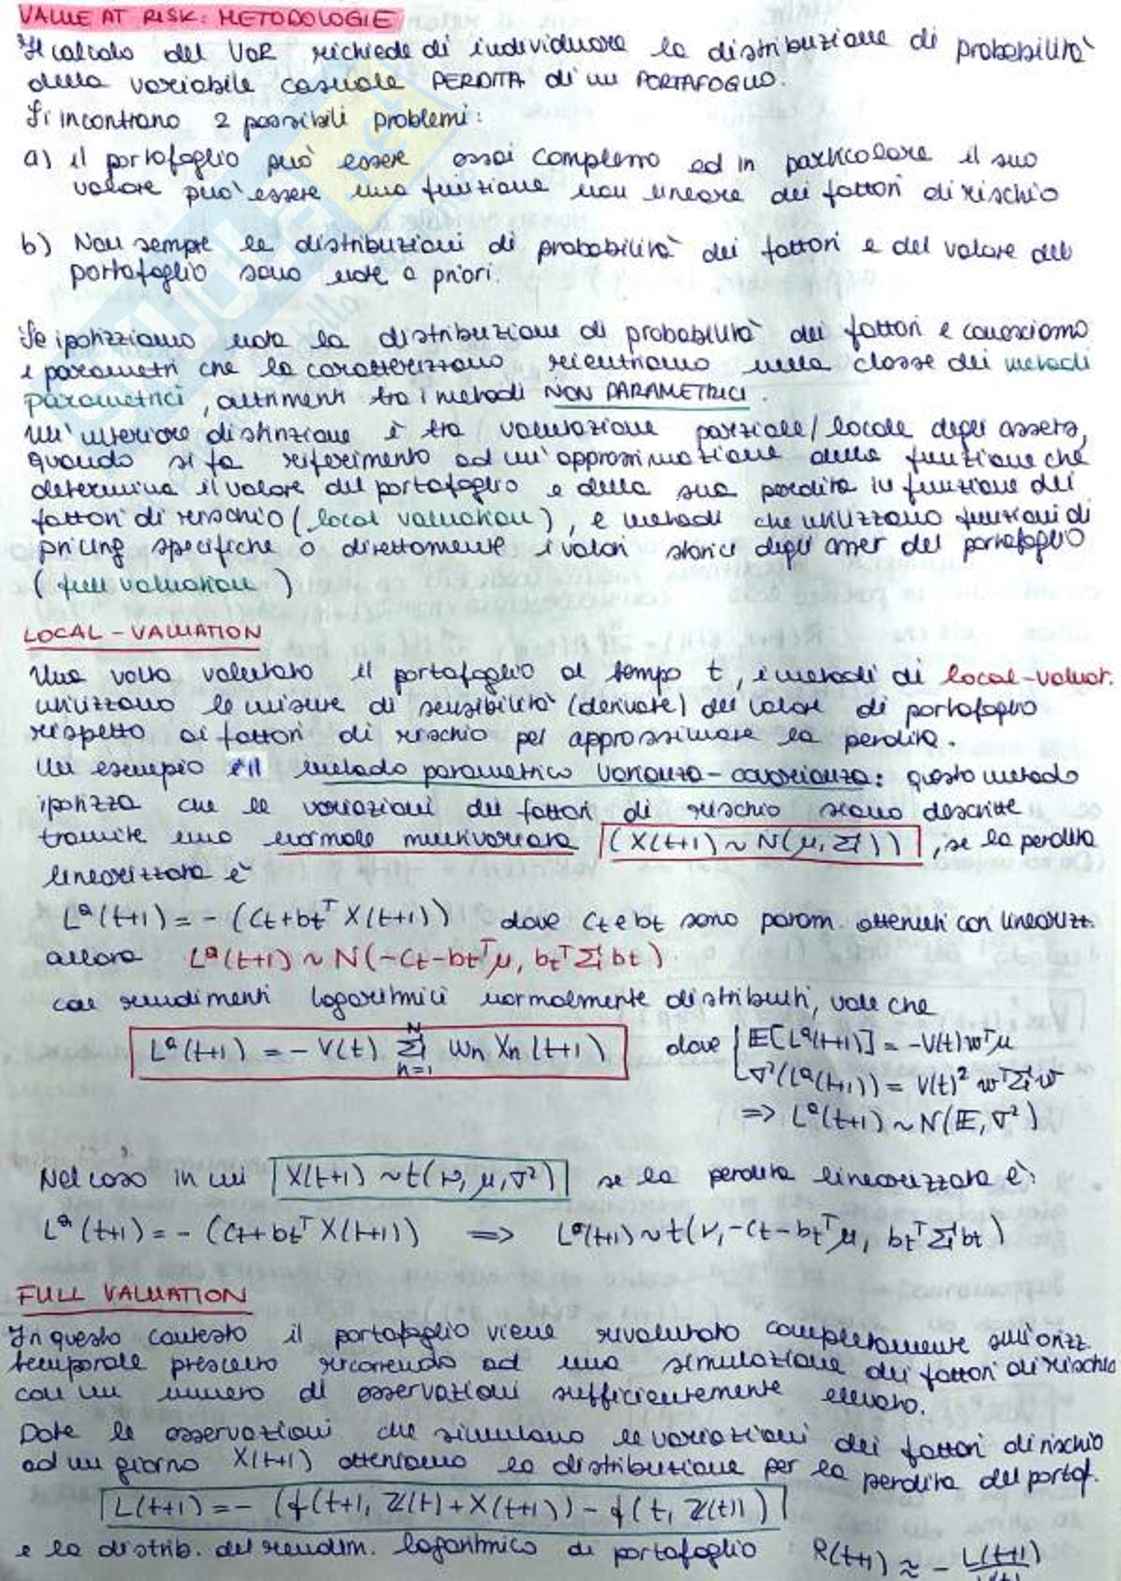 VALUE AT RISK: METODOLOGIE
Il calcolo del VaR richiede di individuare la distribuzione di probabilità
della variabile casuale PERDITA di un PORTAFOGLIO.
Si incontrano 2 possibili problemi:
a) il portafoglio può essere assai complesso ed in particolare il suo
valore può essere una funzione non lineare dei fattori di rischio
b) Non sempre le distribuzioni di probabilità dei fattori e del valore del
portafoglio sono note a priori.
Se ipotizziamo nota la distribuzione di probabilità dei fattori e conosciamo
i parametri che la caratterizzano rientriamo nella classe dei metodi
parametrici, altrimenti tra i metodi NON PARAMETRICI.
Un'ulteriore distinzione è tra valutazione parziale/locale degli assets,
quando si fa riferimento ad un'approssimazione della funzione che
determina il valore del portafoglio e della sua perdita in funzione dei
fattori di rischio (local valuation), e metodi che utilizzano funzioni di
pricing specifiche o direttamente i valori storici degli asset del portafoglio
(full valuation)
LOCAL-VALUATION
Una volta valutato il portafoglio al tempo t, i metodi di local-valuat.
utilizzano le misure di sensibilità (derivate) del valore di portafoglio
rispetto ai fattori di rischio per approssimare la perdita.
Un esempio è il metodo parametrico varianza-covarianza: questo metodo
ipotizza che le variazioni dei fattori di rischio siano descritte
tramite una normale multivariata (X(t+1) ~ N(μ, Σ)), se la perdita
linearizzata è
Lᵃ(t+1) = - (Ct+btᵀ X(t+1)) dove Ct e bt sono param. ottenuti con linearizz.
allora Lᵃ(t+1) ~ N(-Ct-btᵀμ, btᵀ Σ bt)
con rendimenti logaritmici normalmente distribuiti, vale che
Lᵃ(t+1) = - V(t) Σ_{n=1}^{N} wn Xn(t+1) dove { 𝔼[Lᵃ(t+1)] = -V(t)wᵀμ
σ²(Lᵃ(t+1)) = V(t)² wᵀΣw
=> Lᵃ(t+1) ~ N(𝔼, σ²)
Nel caso in cui X(t+1) ~ t(ν, μ, σ²) se la perdita linearizzata è:
Lᵃ(t+1) = - (Ct+btᵀ X(t+1)) => Lᵃ(t+1) ~ t(ν, -Ct-btᵀμ, btᵀ Σ bt)
FULL VALUATION
In questo contesto il portafoglio viene rivalutato completamente sull'orizz.
temporale prescelto ricorrendo ad una simulazione dei fattori di rischio
con un numero di osservazioni sufficientemente elevato.
Date le osservazioni che simulano le variazioni dei fattori di rischio
ad un giorno X(t+1) otteniamo la distribuzione per la perdita del portaf.
L(t+1) = - (f(t+1, Z(t)+X(t+1)) - f(t, Z(t)))
e la distrib. del rendim. logaritmico di portafoglio R(t+1) ≈ - L(t+1)